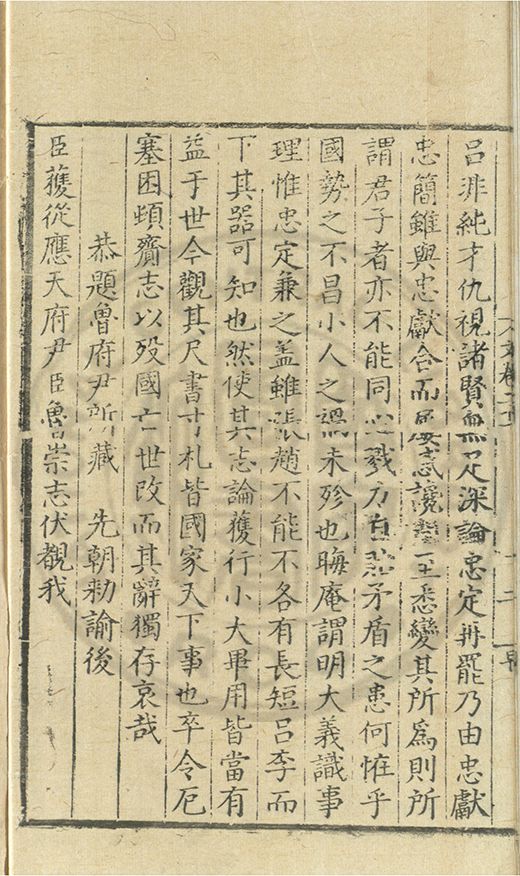 呂非純才仇視諸賢無足深論忠定再罷乃由忠獻
忠簡雖與忠獻合而晏志讒至悉變其所為則所
謂君子者亦不能同心戮力自悲矛盾之患何惟乎
國勢之不昌小人之謁未殄也晦庵謂明大義識事
理惟忠定兼之盖雖張趙不能不各有長短呂李而
下其器可知也然使其志論獲行小大畢用皆當有
益于世今觀其尺書寸札皆國家天下事也卒令厄
塞困頓齎志以歿國亡世改而其辭獨存哀哉
恭題魯府尹所藏 先朝勑諭後
臣獲從應天府尹臣魯崇志伏覩我